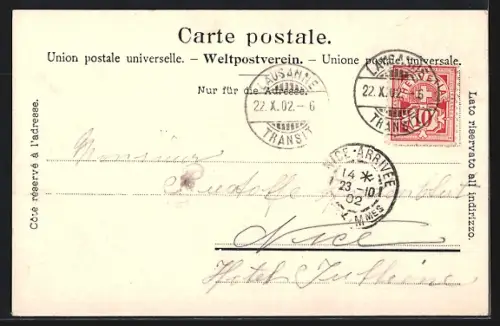 Carte postale.
Union postale universelle. – Weltpostverein. – Unione postale universale.
Nur für die Adresse.
LAUSANNE
22.X.02.–6
TRANSIT
LAUSANNE
22.X.02.–6
TRANSIT
HELVETIA
10
Côté réservé à l'adresse.
Lato riservato all'indirizzo.
NICE-ARRIVÉE
14 *
23-10
02
Monsieur
Nice
Hotel